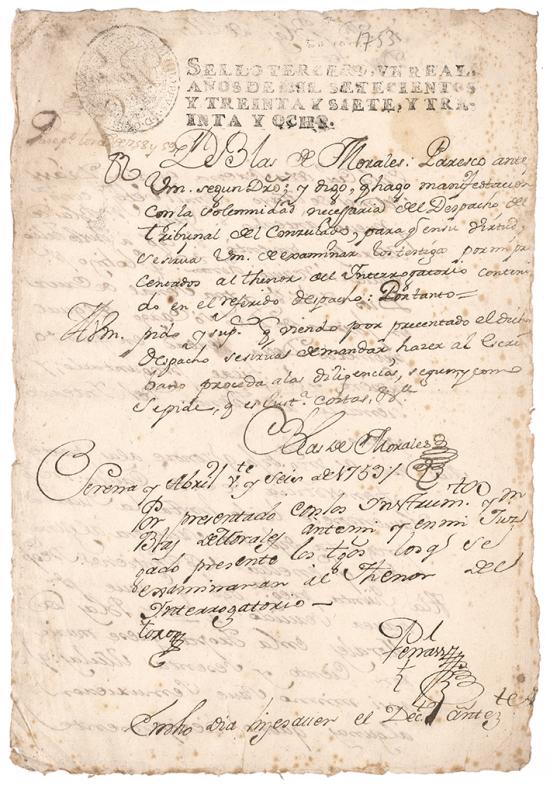 1753
SELLO TERCERO, VN REAL,
AÑOS DE MIL SETECIENTOS
Y TREINTA Y SIETE, Y TRE-
INTA Y OCHO.
Dn Blas de Morales: Paresco ante
Vm. segun Dro; y digo, q hago manifestacion
con la solemnidad necessaria del Despacho de
tribunal del Consulado, para q en su virtud,
se sirva Vm. de examinar los testigos por mi pre
centados al thenor del Interrogatorio conteni
do en el referido despacho: Por tanto =
A Vm. pido y sup. q viendo por precentado el dicho
despacho se sirva de mandar hazer al Escri
bano proceda a las diligencias, segun y como
se pide, q es Just.a costas, &a
Blas de Morales
Serena y Abril v.te y seis de 1753
Por presentado con los Instrum.tos y en
Blas de Morales ante mi y en mi Juz
gado presente los tgos los q se
examinaran al Thenor del
Interrogatorio —
En dho dia el Dec.to antez.te